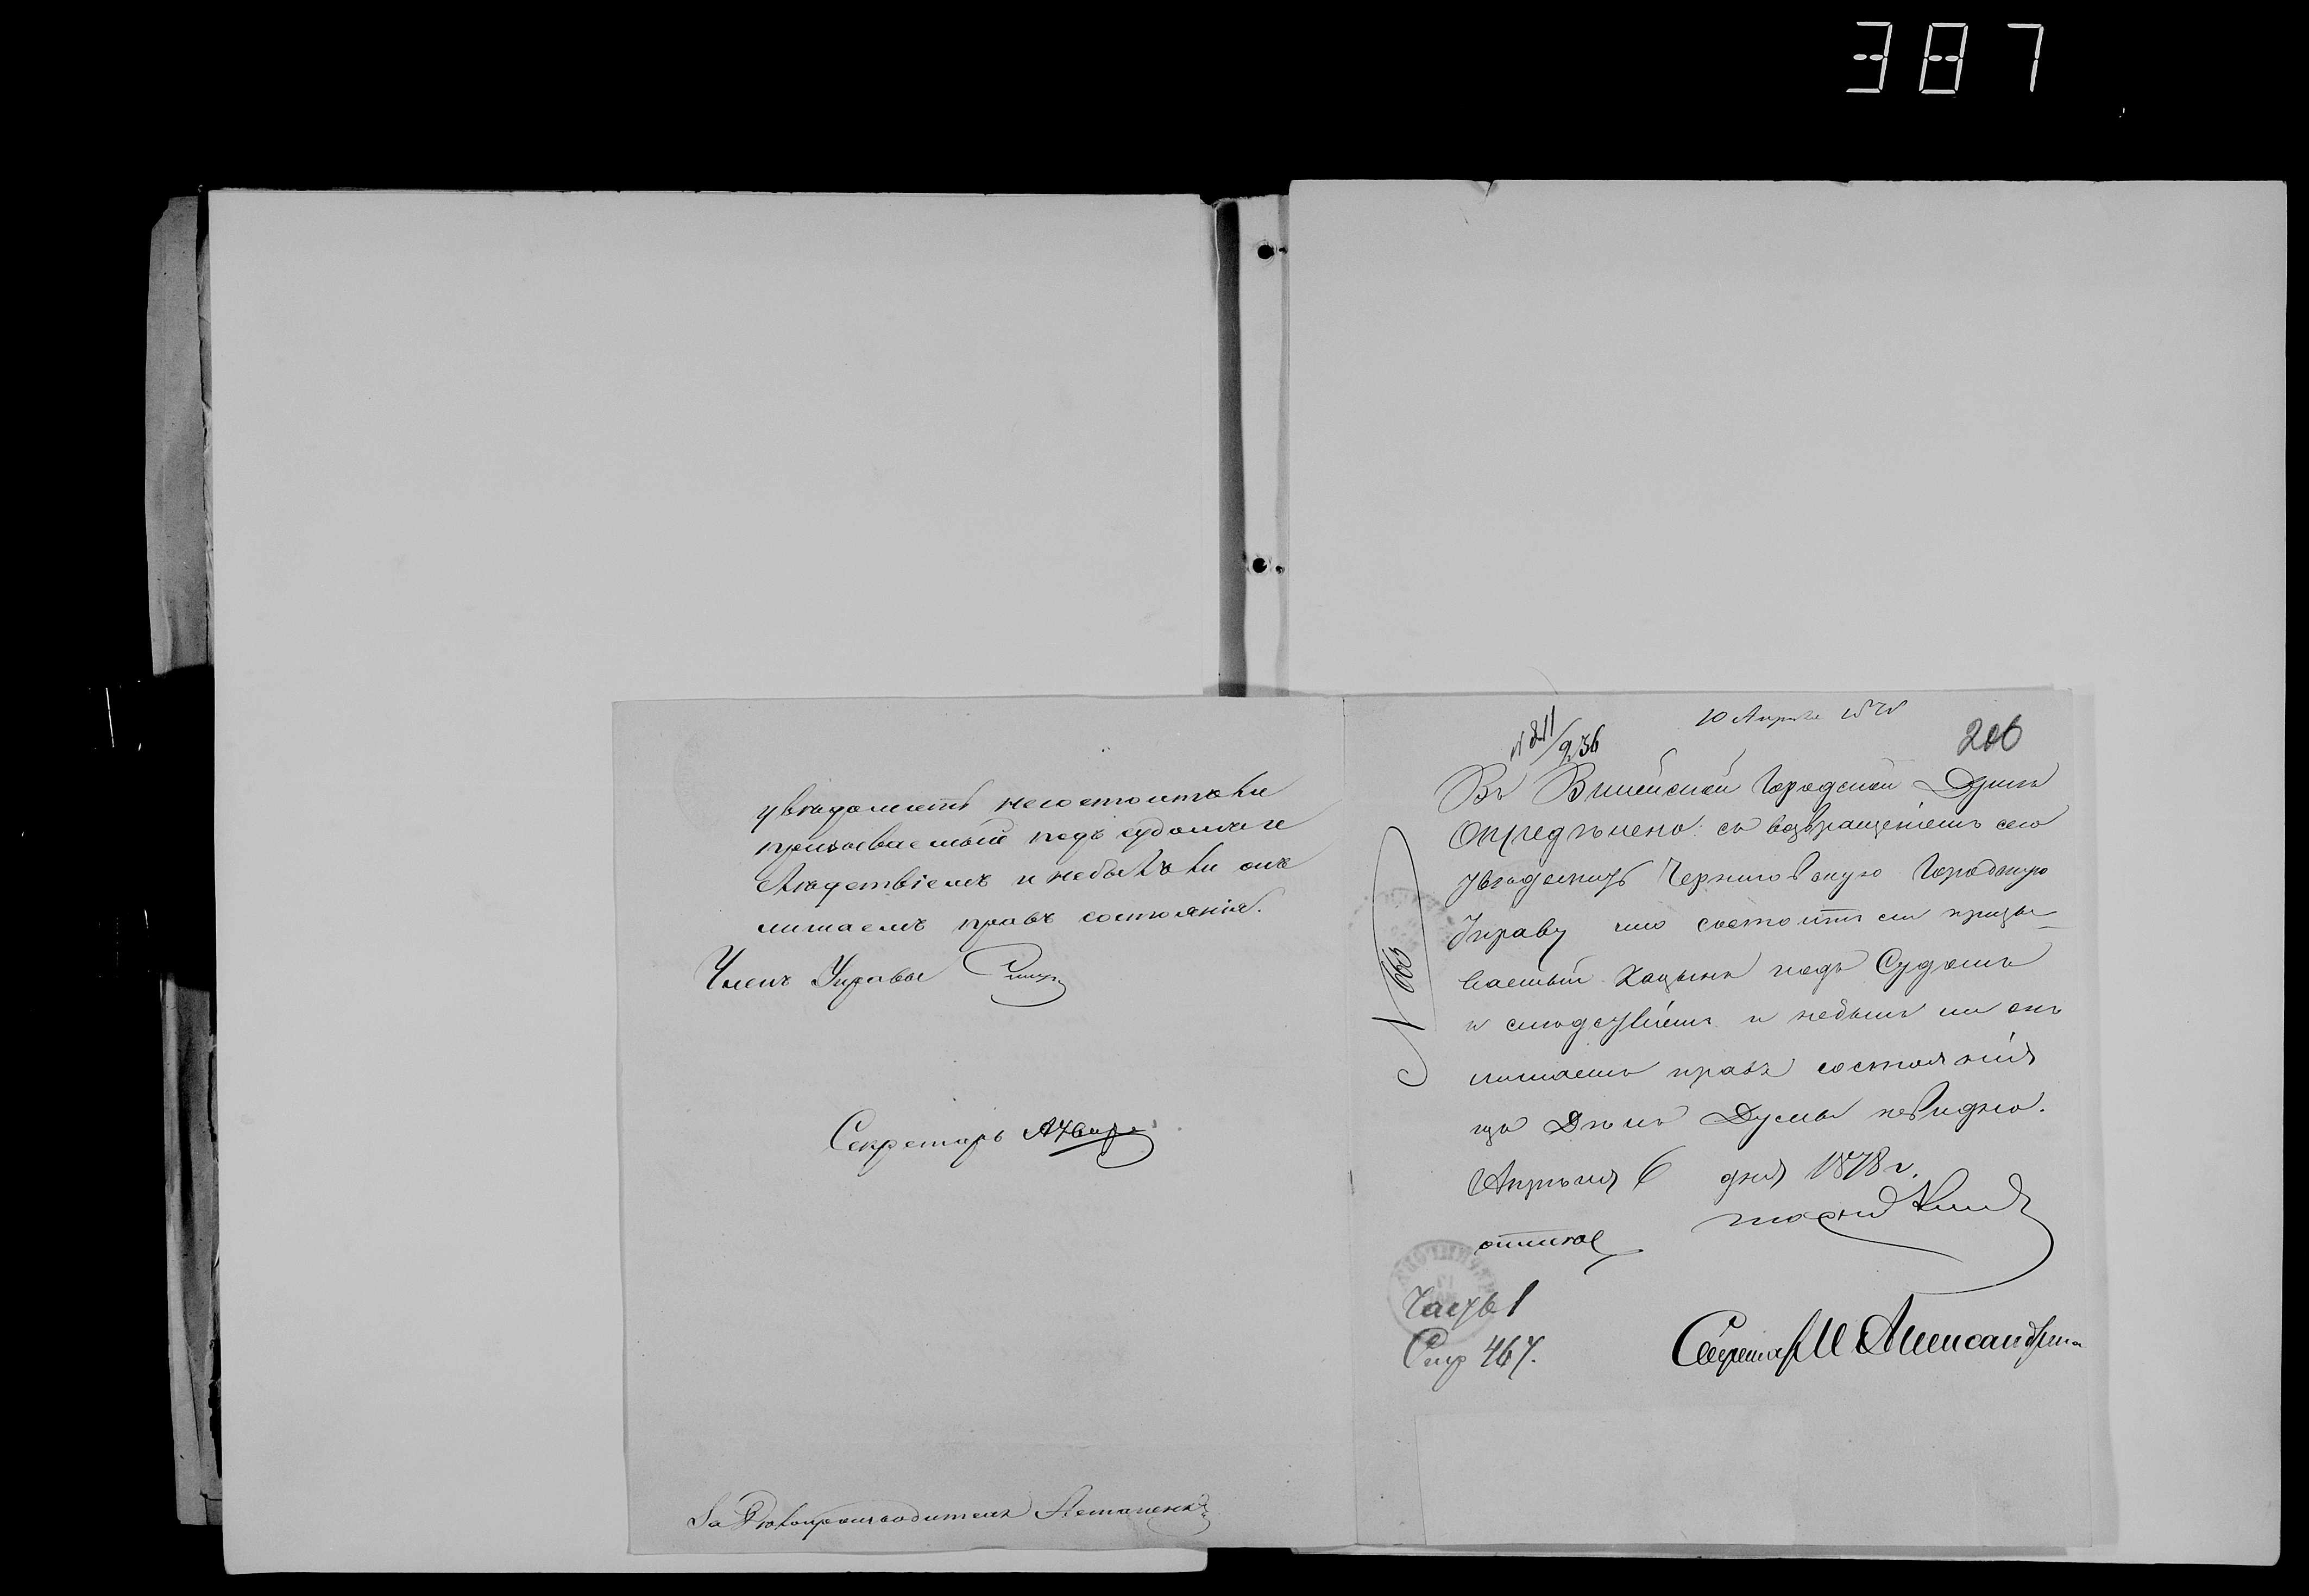 387
увѣдомить несостоитъ ли
призываемый подъ судомъ и
слѣдствіемъ и небылъ ли онъ
лишаемъ правъ состоянія.
Членъ Управы
Секретарь
За Дѣлопроизводителя
10 Апрѣля 1878
№ 811/236
206
Въ Городской Думѣ
Опредѣлено: съ возвращеніемъ сего
увѣдомить Черниговскую Городскую
Управу что состоитъ ли призы-
ваемый Хацынъ подъ Судомъ
и слѣдствіемъ и небылъ ли онъ
лишаемъ правъ состоянія
изъ Дѣлъ Думы невидно.
Апрѣля 6 дня 1878 г.
№ 663
Часть 1
Стр 467.
Секретарь М Александр